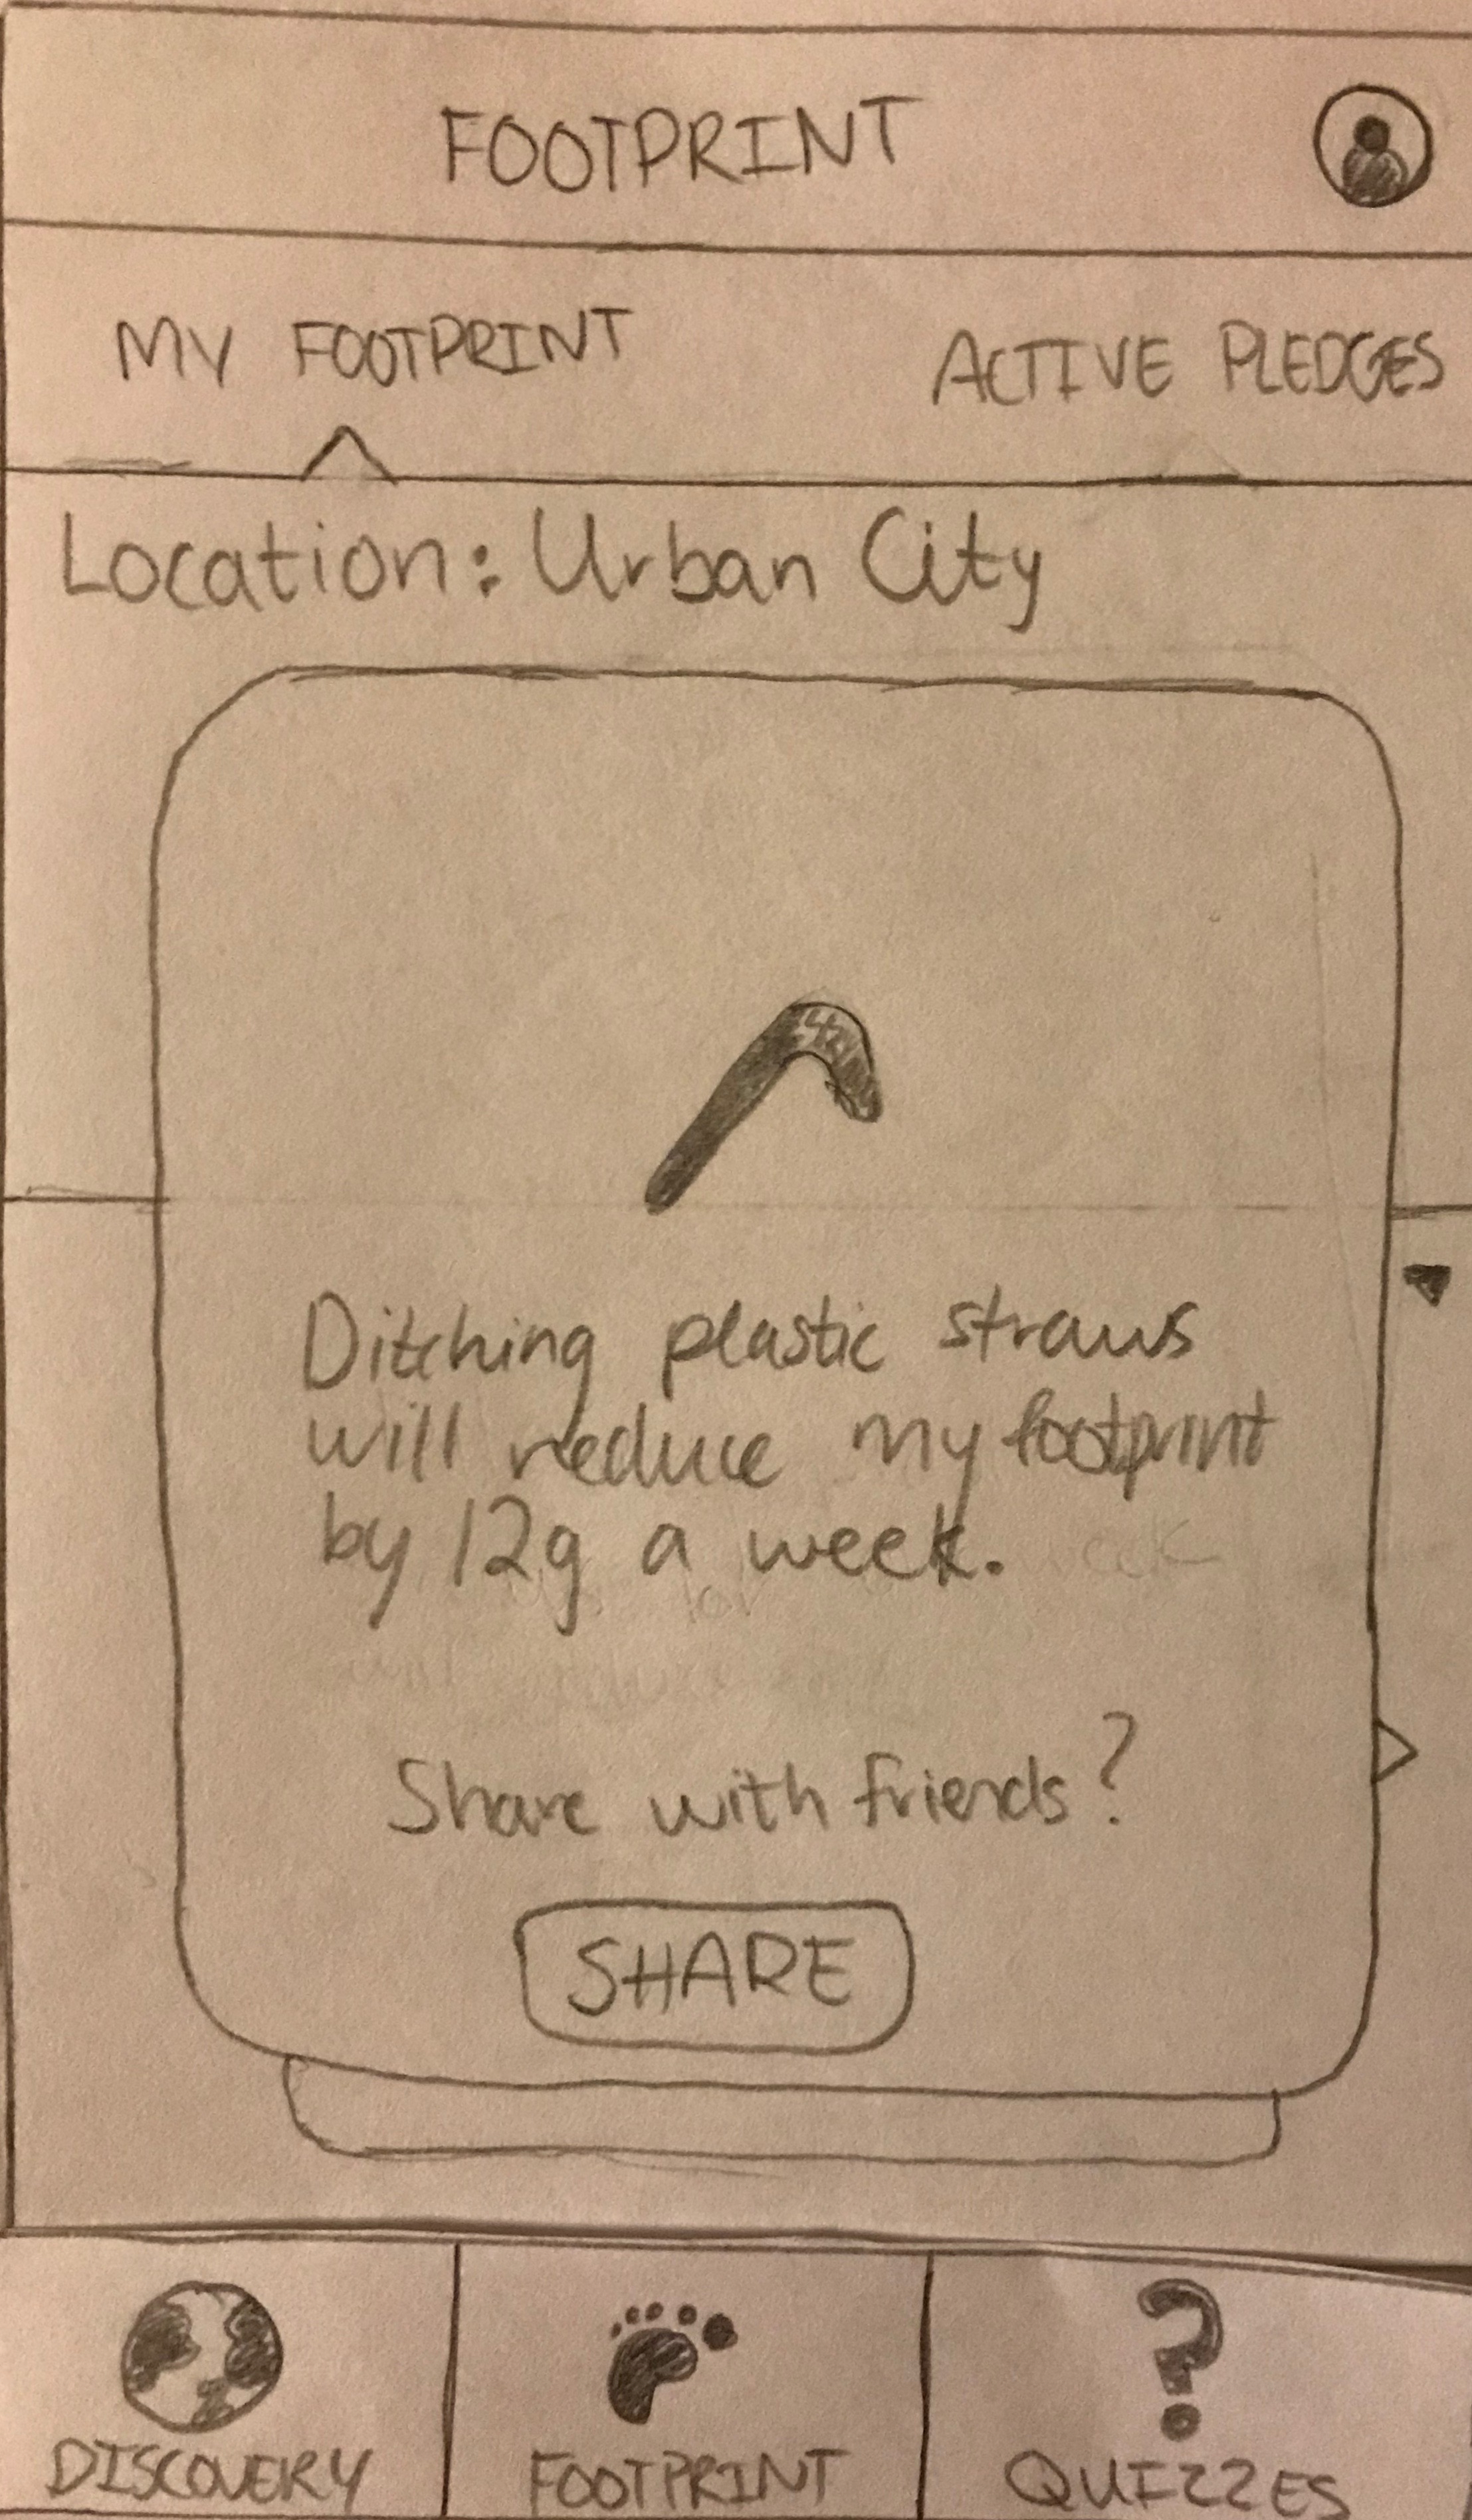 FOOTPRINT
MY FOOTPRINT
ACTIVE PLEDGES
Location: Urban City
Ditching plastic straws
will reduce my footprint
by 12g a week.
Share with friends?
SHARE
DISCOVERY
FOOTPRINT
QUIZZES